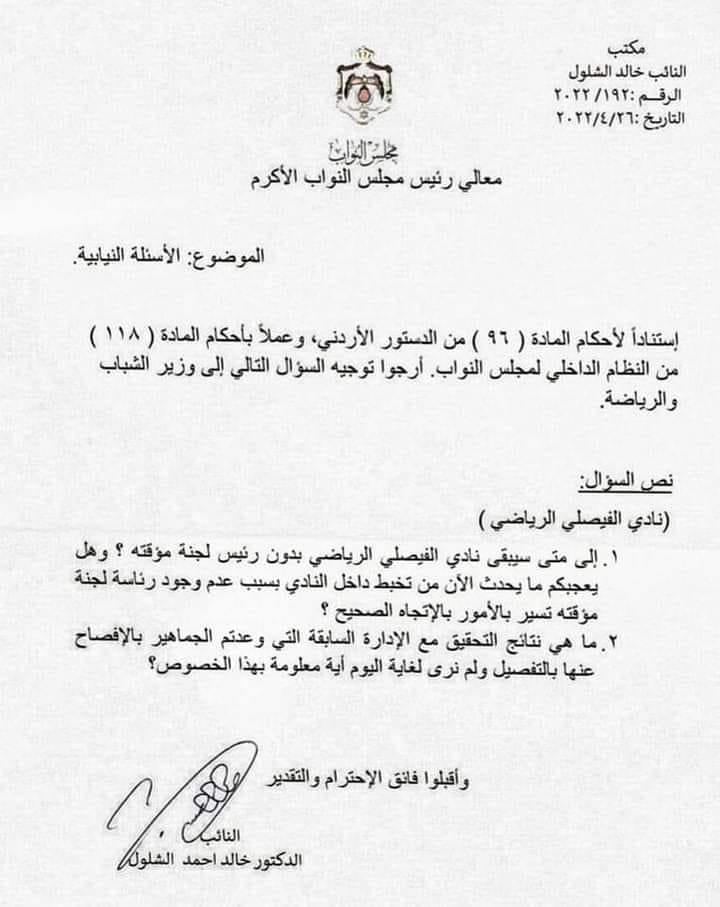 مكتب
النائب خالد الشلول
الرقـــم :١٩٢/ ٢٠٢٢
التاريخ :٢٠٢٢/٤/٢٦
مجلس النواب
معالي رئيس مجلس النواب الأكرم
الموضوع: الأسئلة النيابية.
إستناداً لأحكام المادة ( ٩٦ ) من الدستور الأردني، وعملاً بأحكام المادة ( ١١٨ )
من النظام الداخلي لمجلس النواب. أرجوا توجيه السؤال التالي إلى وزير الشباب
والرياضة.
نص السؤال:
(نادي الفيصلي الرياضي )
١. إلى متى سيبقى نادي الفيصلي الرياضي بدون رئيس لجنة مؤقته ؟ وهل
يعجبكم ما يحدث الآن من تخبط داخل النادي بسبب عدم وجود رئاسة لجنة
مؤقته تسير بالأمور بالإتجاه الصحيح ؟
٢. ما هي نتائج التحقيق مع الإدارة السابقة التي وعدتم الجماهير بالإفصاح
عنها بالتفصيل ولم نرى لغاية اليوم أية معلومة بهذا الخصوص؟
وأقبلوا فائق الإحترام والتقدير
النائب
الدكتور خالد احمد الشلول